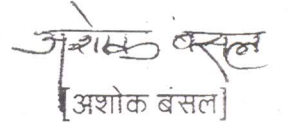 अशोक बंसल
[अशोक बंसल]